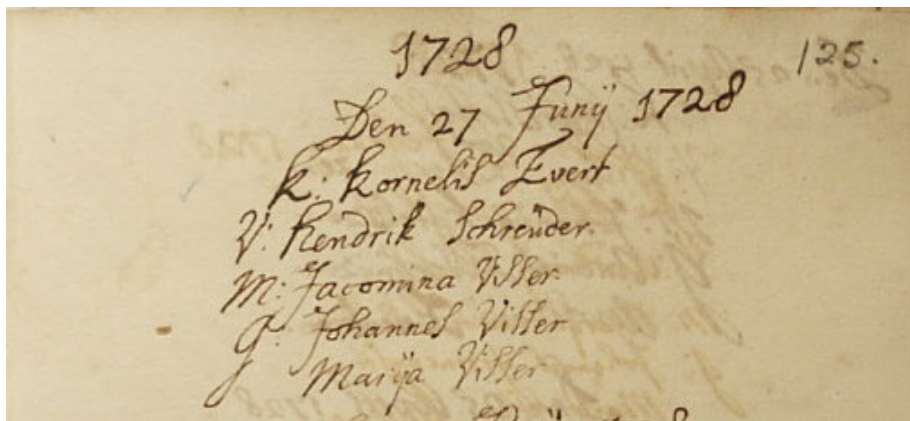 1728
125.
Den 27 Junij 1728
K: Kornelis Evert
V: Hendrik Schreuder
M: Jacomina Visser
G: Johannes Visser
Marija Visser